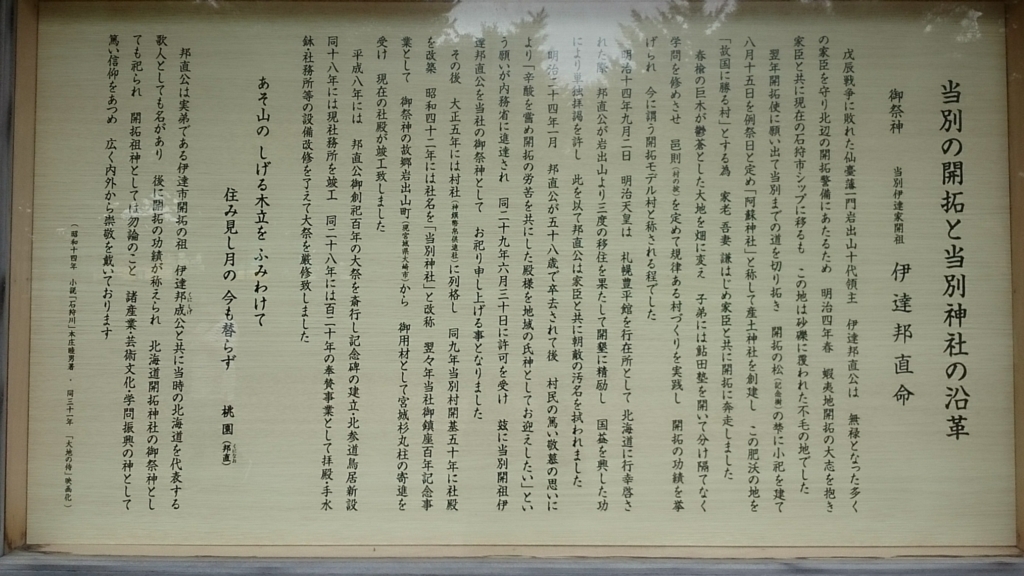 当別の開拓と当別神社の沿革
御祭神 当別伊達家開祖 伊達邦直命
戊辰戦争に敗れた仙臺藩一門岩出山十代領主 伊達邦直公は 無禄となった多く
の家臣を守り北辺の開拓警備にあたるため 明治四年春 蝦夷地開拓の大志を抱き
家臣と共に現在の石狩市シップに移るも この地は砂礫に覆われた不毛の地でした
翌年開拓使に願い出て当別までの道を切り拓き 開拓の松(記念樹)の拳に小祀を建て
八月十五日を例祭日と定め「阿蘇神社」と称して産土神社を創建し この肥沃の地を
「故国に勝る村」とする為 家老 吾妻 謙はじめ家臣と共に開拓に奔走しました
春楡の巨木が鬱蒼とした大地を畑に変え 子弟には鮎田塾を開いて分け隔てなく
学問を修めさせ 邑則(村の掟)を定めて規律ある村づくりを実践し 開拓の功績を挙
げられ 今に謂う開拓モデル村と称される程でした
明治十四年九月二日 明治天皇は 札幌豊平館を行在所として 北海道に行幸啓さ
れた際 邦直公が岩出山より三度の移住を果たして開墾に精励し 国益を興した功
により単独拝謁を許し 此を以て邦直公は家臣と共に朝敵の汚名を拭われました
明治二十四年一月 邦直公が五十八歳で卒去されて後 村民の篤い敬慕の思いに
より「辛酸を嘗め開拓の労苦を共にした殿様を地域の氏神としてお迎えしたい」とい
う願いが内務省に進達され 同二十九年六月三十日に許可を受け 玆に当別開祖伊
達邦直公を当社の御祭神として お祀り申し上げる事となりました
その後 大正五年には村社(神饌幣帛供進社)に列格し 同九年当別村開基五十年に社殿
を改築 昭和四十二年には社名を「当別神社」と改称 翌々年当社御鎮座百年記念事
業として 御祭神の故郷岩出山町(現宮城県大崎市)から 御用材として宮城杉丸柱の寄進を
受け 現在の社殿が竣工致しました
平成八年には 邦直公御創祀百年の大祭を斎行し記念碑の建立・北参道鳥居新設
同十八年には現社務所を竣工 同二十八年には百二十年の奉賛事業として拝殿・手水
鉢・社務所等の設備改修を了えて大祭を厳修致しました
あそ山の しげる木立を ふみわけて
住み見し月の 今も替らず 桃園(邦直)
邦直公は実弟である伊達市開拓の祖 伊達邦成公と共に当時の北海道を代表する
歌人としても名があり 後に開拓の功績が称えられ 北海道開拓神社の御祭神とし
ても祀られ 開拓祖神としては勿論のこと 諸産業・芸術文化・学問振興の神として
篤い信仰をあつめ 広く内外から崇敬を戴いております
(昭和十四年 小説「石狩川」本庄睦男著 ・ 同三十一年 「大地の侍」映画化)